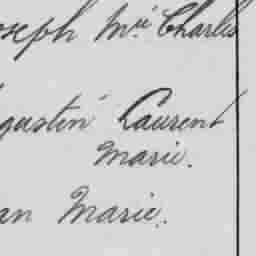 oseph Mie Charles
gustin Laurent
Marie.
an Marie.